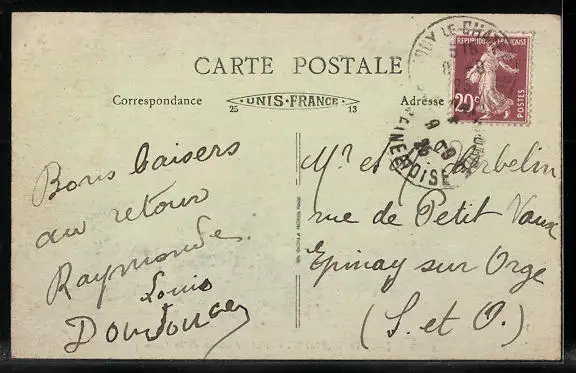 CARTE POSTALE
Correspondance
UNIS-FRANCE
25 13
Adresse
REPUBLIQUE FRANÇAISE
20c
POSTES
SEINE & OISE
Bons baisers
au retour
Raymonde
Louis
Doudouce
Mr et Corbelin
rue de Petit Vaux
Epinay sur Orge
(S. et O.)